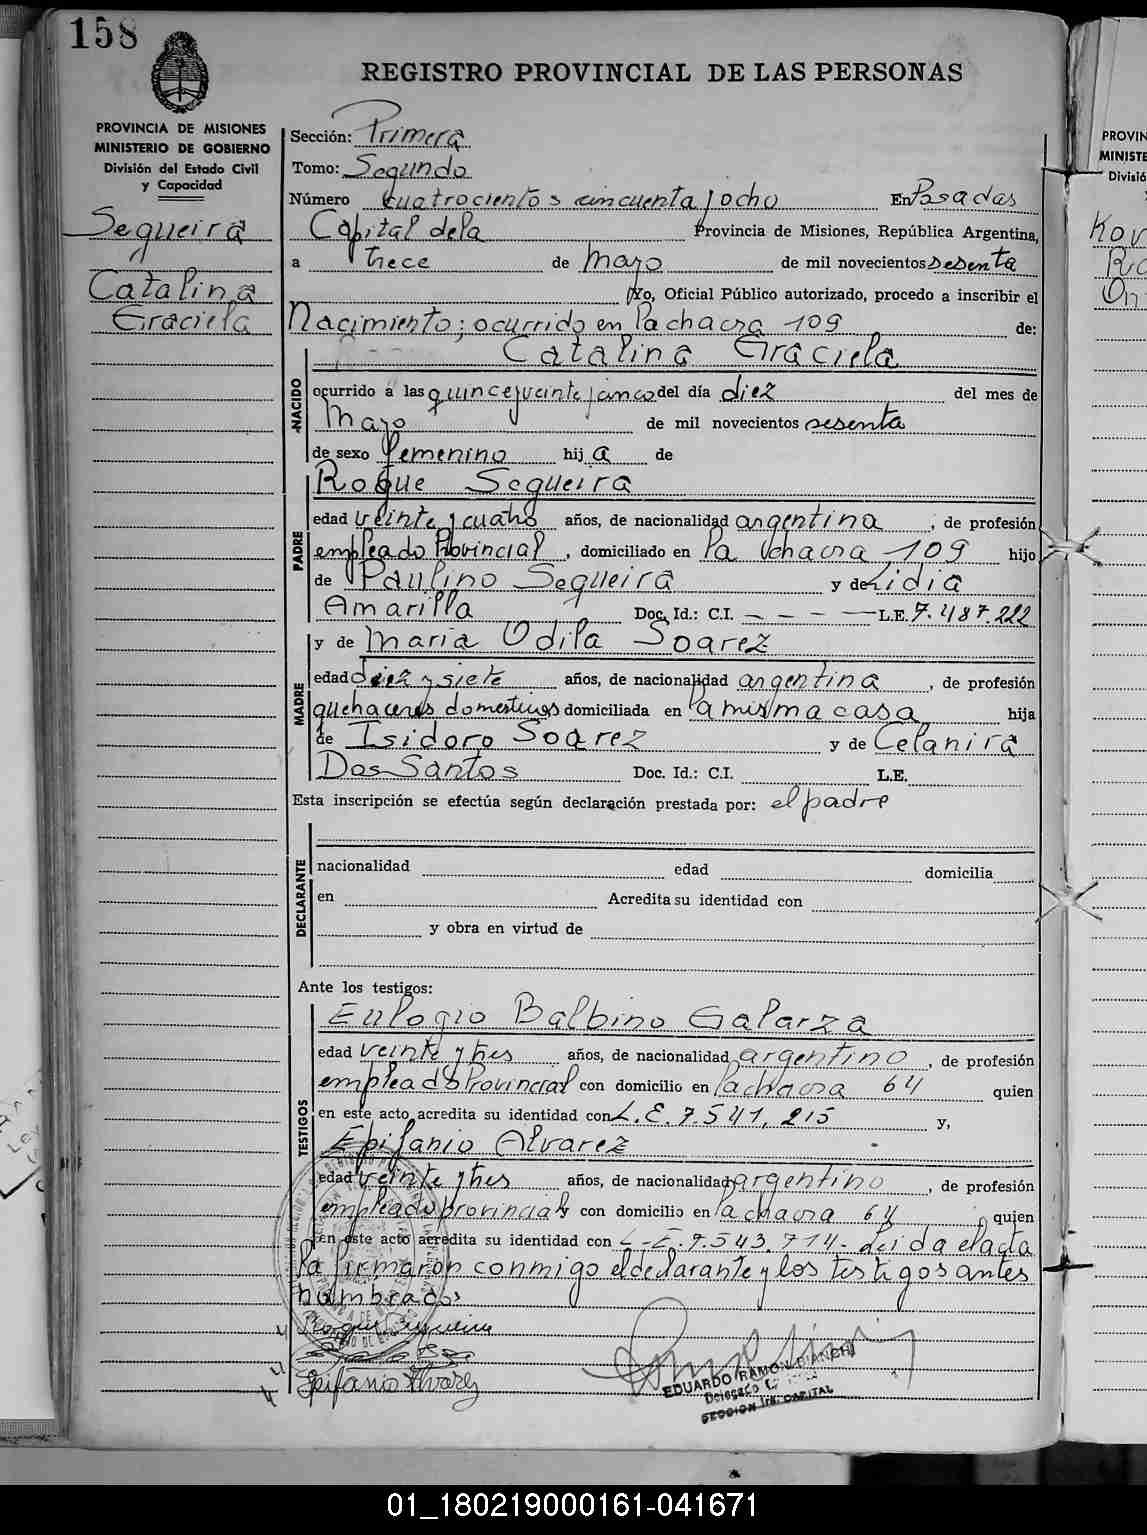 158
REGISTRO PROVINCIAL DE LAS PERSONAS
PROVINCIA DE MISIONES
MINISTERIO DE GOBIERNO
División del Estado Civil
y Capacidad
Sequeira
Catalina
Graciela
Sección: Primera
Tomo: Segundo
Número cuatrocientos cincuenta y ocho En Posadas
Capital de la Provincia de Misiones, República Argentina,
a trece de Mayo de mil novecientos sesenta
Yo, Oficial Público autorizado, procedo a inscribir el
Nacimiento; ocurrido en la chacra 109 de:
Catalina Graciela
NACIDO
ocurrido a las quince y veinte y cinco del día diez del mes de
Mayo de mil novecientos sesenta
de sexo femenino hij a de
Roque Sequeira
PADRE
edad veinte y cuatro años, de nacionalidad argentina, de profesión
empleado Provincial, domiciliado en la chacra 109 hijo
de Paulino Sequeira y de Lidia
Amarilla Doc. Id.: C.I. - - - - L.E. 7.487.222
y de Maria Odila Soarez
MADRE
edad diez y siete años, de nacionalidad argentina, de profesión
quehaceres domesticos domiciliada en la misma casa hija
de Isidoro Soarez y de Celanira
Dos Santos Doc. Id.: C.I. L.E.
Esta inscripción se efectúa según declaración prestada por: el padre
DECLARANTE
nacionalidad edad domicilia
en Acredita su identidad con
y obra en virtud de
Ante los testigos:
TESTIGOS
Eulogio Balbino Galarza
edad veinte y tres años, de nacionalidad argentino, de profesión
empleado Provincial con domicilio en la chacra 64 quien
en este acto acredita su identidad con L.E. 7.541.215 y,
Epifanio Alvarez
edad veinte y tres años, de nacionalidad argentino, de profesión
empleado provincial con domicilio en la chacra 64 quien
en este acto acredita su identidad con L-E.7.543.714- leida el acta
la firmaron conmigo el declarante y los testigos antes
nombrados
Roque Sequeira
Epifanio Alvarez
EDUARDO RAMON BIANCHI
Delegado
SECCION 1ra. CAPITAL
PROVIN
MINISTE
Divisió
Kov
01_180219000161-041671